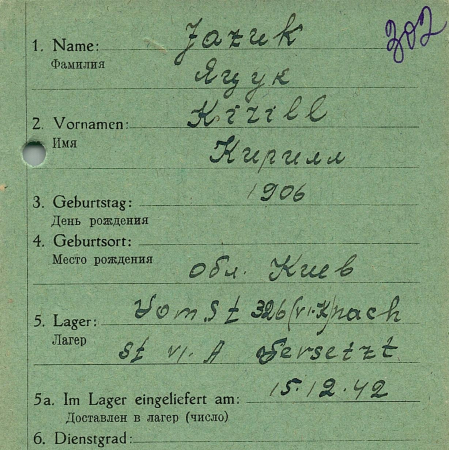 302
1. Name: Jazuk
Фамилия Яцук
2. Vornamen: Kirill
Имя Кирилл
3. Geburtstag: 1906
День рождения
4. Geburtsort:
Место рождения обл. Киев
5. Lager: Vom St 326 (VI-K) nach
Лагерь St VI. A Versetzt
5a. Im Lager eingeliefert am: 15.12.42
Доставлен в лагерь (число)
6. Dienstgrad: